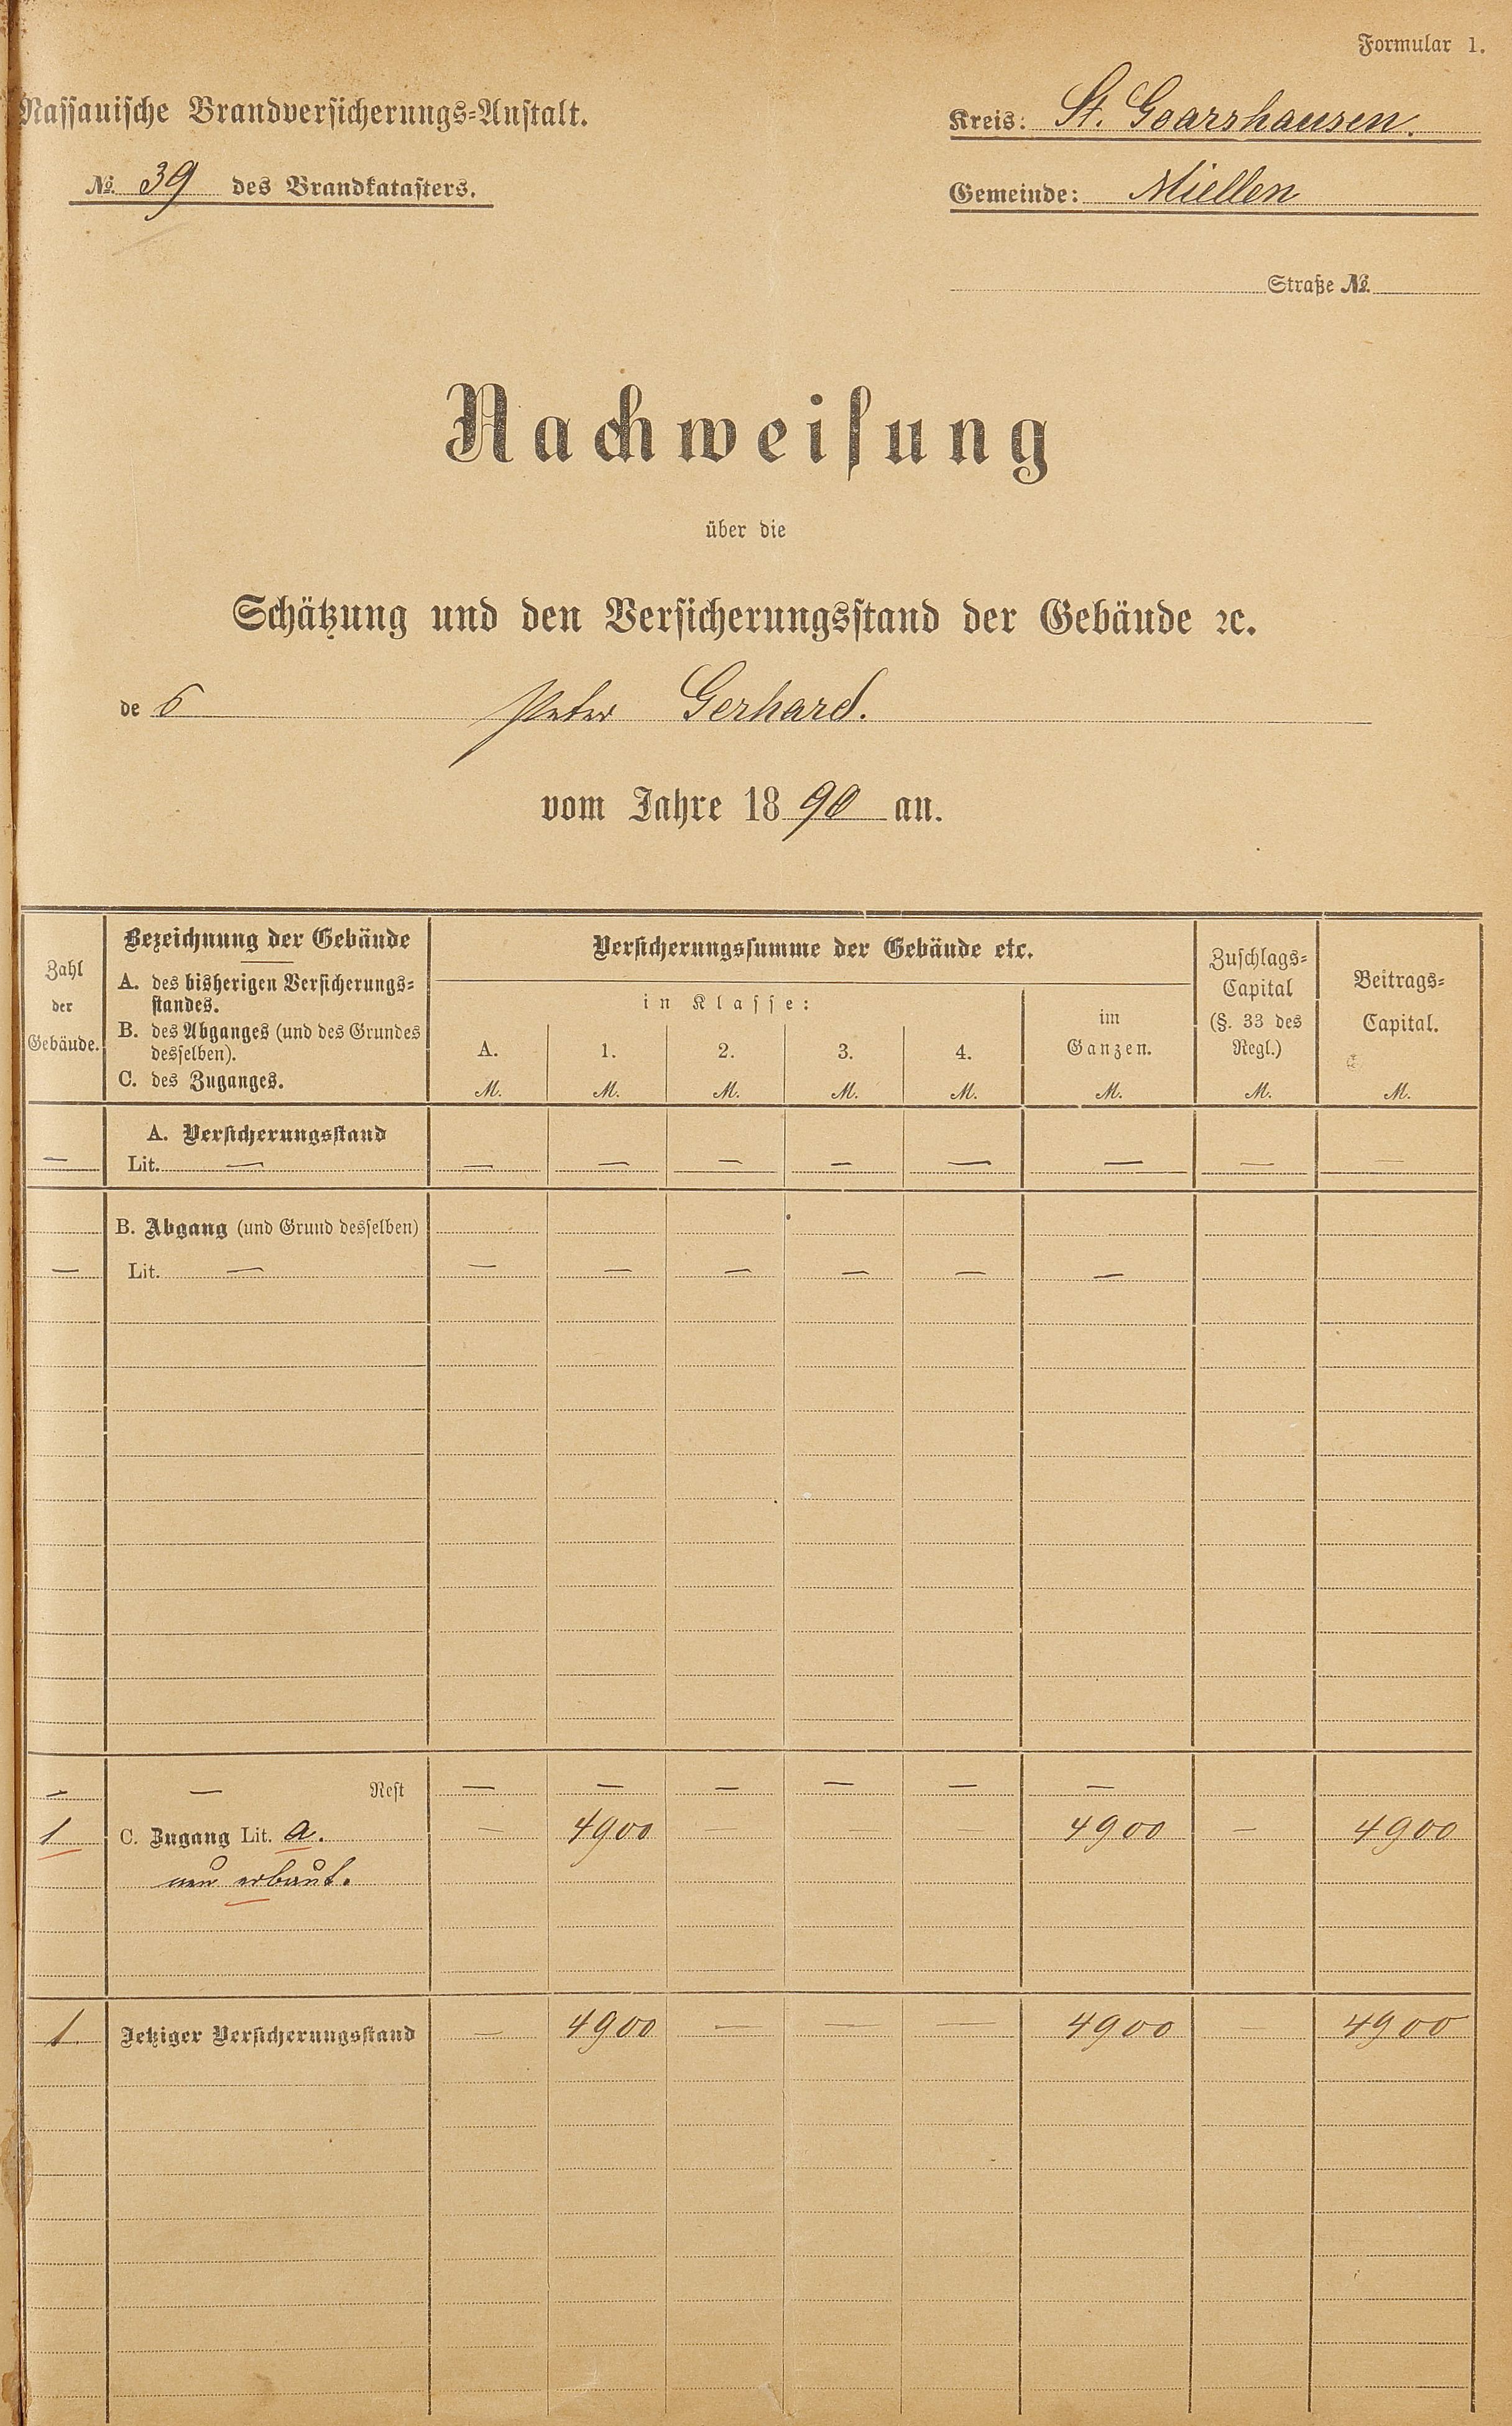 Formular 1.
Nassauische Brandversicherungs-Anstalt.
№ 39 des Brandkatasters.
Kreis: St. Goarshausen.
Gemeinde: Miellen
Straße №
Nachweisung
über die
Schätzung und den Versicherungsstand der Gebäude ꝛc.
des Peter Gerhard.
vom Jahre 1890 an.
Zahl der Gebäude.
Bezeichnung der Gebäude
A. des bisherigen Versicherungs-
standes.
B. des Abganges (und des Grundes
desselben).
C. des Zuganges.
Versicherungssumme der Gebäude etc.
in Klasse:
A. 1. 2. 3. 4.
M. M. M. M. M.
im
Ganzen.
M.
Zuschlags-
Capital
(§. 33 des
Regl.)
M.
Beitrags-
Capital.
M.
A. Versicherungsstand
— Lit. — — — — — — — — —
B. Abgang (und Grund desselben)
— Lit. — — — — — — —
— — Rest — — — — — —
1 C. Zugang Lit. a. — 4900 — — — 4900 — 4900
neu erbaut.
1. Jetziger Versicherungsstand — 4900 — — — 4900 — 4900